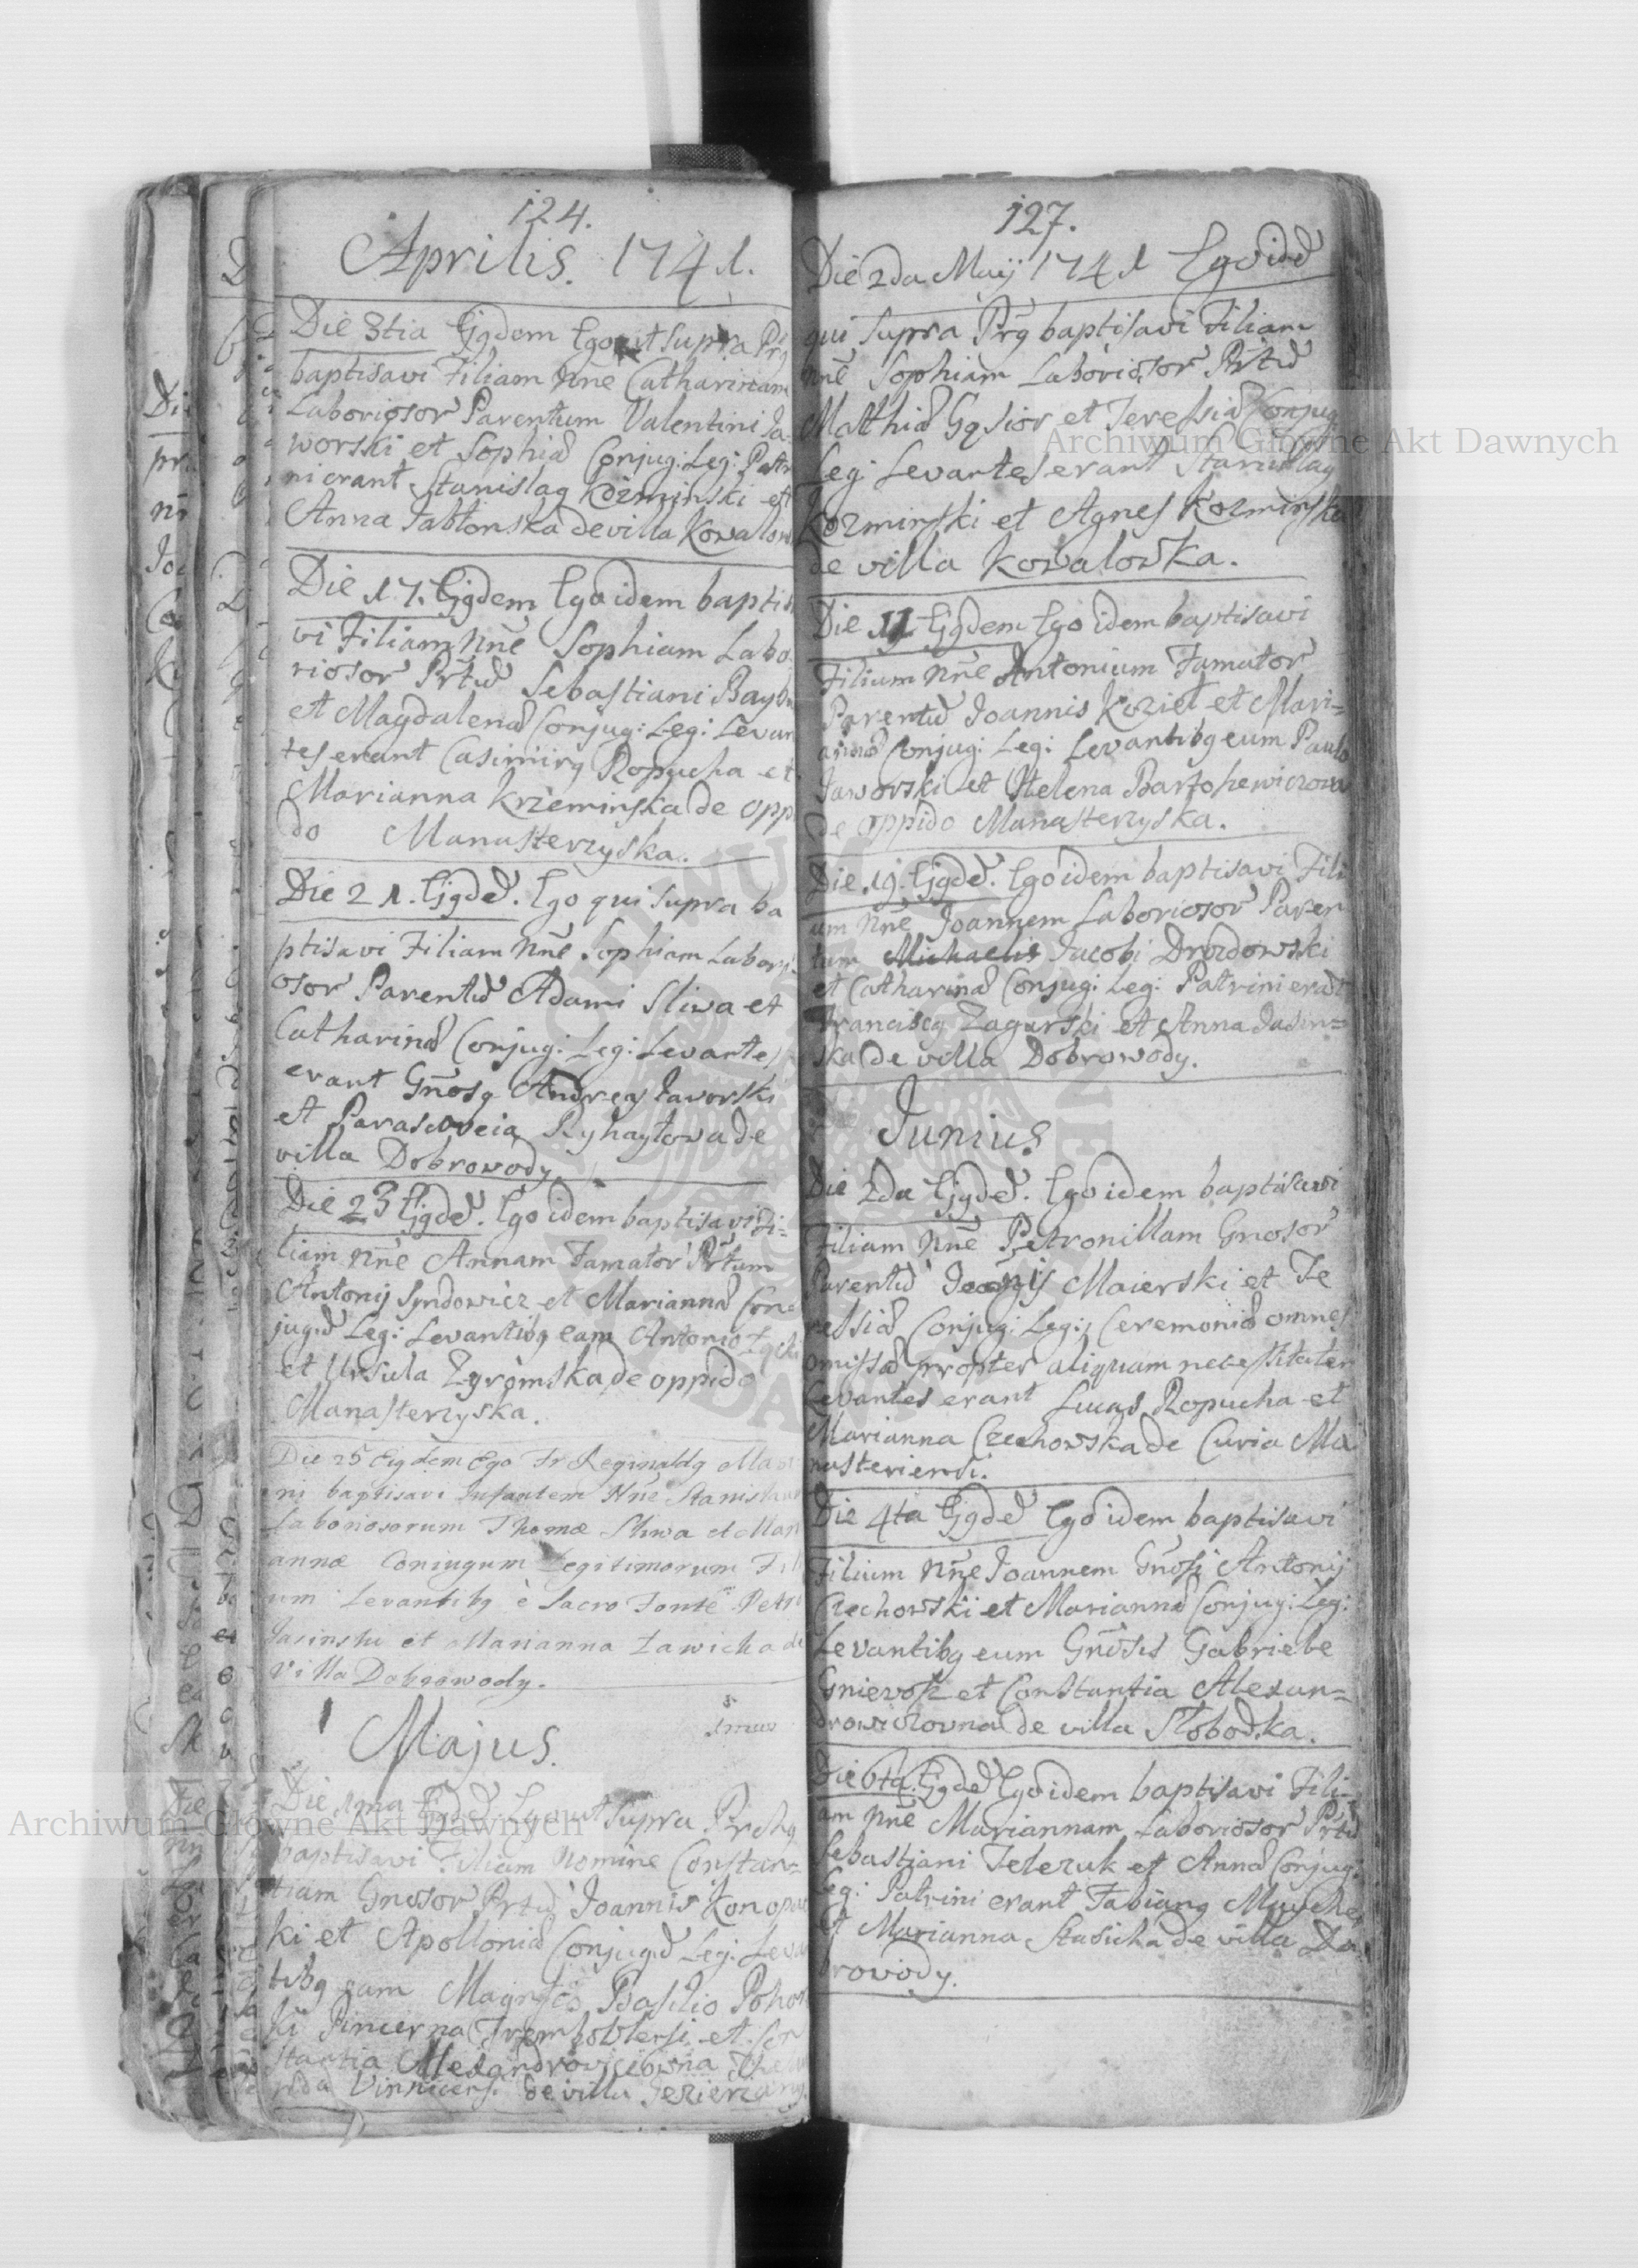 124.
Aprilis. 1741.
Die 3tia Ejqdem Ego ut supra Prq
baptisavi Filiam Nñe Catharinam
Laboriosor Parentum Valentini Ja-
worski et Sophiæ Conjug: Leg: Patr
ni erant Stanislaq Kozminski et
Anna Jabłonska de villa Kowalow
Die 17. Ejqdem Ego idem baptis
vi Filiam Nñe Sophiam Labo
riosor Prtũ Sebastiani
et Magdalenæ Conjug: Leg: Levan
tes erant Casimirq Ropucha et
Marianna Krzeminska de opp
do Manasterzyska.
Die 21. Ejqdẽ. Ego qui supra ba
ptisavi Filiam Nñe Sophiam Labori
osor Parentũ Adami Sliwa et
Catharinæ Conjug: Leg: Levantes
erant Gñosq Andreas Jaworski
et Parascoveia Ryhaytowa de
villa Dobrowody
Die 23 Ejqdẽ. Ego idem baptisavi Fi-
liam Nñe Annam Famator Prtum
Antonij Syndowicz et Mariannæ Con
jugũ Leg: Levantibq eam Antonio
et Ursula Zgrömska de oppido
Manasterzyska.
Die 25 Eiqdem Ego Fr Reginaldq
ni baptisavi Infantem Nñe Stanislaum
Laboriosorum Thomæ Sliwa et Mari
annæ Coniugum Legitimorum Fili
um Levantibq è Sacro Fonte Petro
Jasinski et Marianna Zawicha de
Villa Dobrowody.
Majus.
Die 1ma Ejqdẽ. Ego ut supra
baptisavi Filiam Nomine Constan-
tiam Gnosor Prtũ Joannis Konopac
ki et Apolloniæ Conjugũ Leg: Levan
tibq eam Magnifco Basilio Pohor
ki Pincerna Trembovlensi et Con
stantia Alexandrowiczowna
rida Vinnicens. de villa Jezierzany.
127.
Die 2da Maij 1741 Ego idẽ
qui supra Prq baptisavi Filiam
Nñe Sophiam Laboriosor Prtũ
Mathiæ Gąsior et Teressiæ Conjug
Leg: Levantes erant Stanislaq
Kozminski et Agnes Kozminska
de villa Kowalowka.
Die 11 Ejqdem Ego idem baptisavi
Filium Nñe Antonium Famator
Parentũ Joannis Kozieł et Mari-
annæ Conjug: Leg: Levantibq eum Paulo
Jaworski et Helena Bartoszewiczowa
de oppido Manasterzyska.
Die 19. Ejqdẽ. Ego idem baptisavi Fili
um Nñe Joannem Laboriosor Paren
tum Michaelis Jacobi Drozdowski
et Catharinæ Conjug: Leg: Patrini erãt
Franciscq Zagurski et Anna Jasin-
ska de villa Dobrowody.
Junius
Die 2da Ejqdẽ. Ego idem baptisavi
Filiam Nñe Petronillam Gnosor
Parentũ Joannis Maierski et Te
ressiæ Conjug: Leg:, Ceremoniæ omnes
omissæ propter aliquam necessitatem
Levantes erant Lucas Ropucha et
Marianna Czechowska de Curia Ma
nasteriensi.
Die 4ta Ejqdẽ Ego idem baptisavi
Filium Nñe Joannem Gñosi Antonij
Czechowski et Mariannæ Conjug: Leg:
Levantibq eum Gñosis Gabriele
Gniewosz et Constantia Alexan-
drowiczowna de villa Słobodka.
Die 6ta Ejqdẽ Ego idem baptisavi Fili-
am Nñe Mariannam Laboriosor Prtũ
Sebastiani Telezuk et Annæ Conjug:
Leg: Patrini erant Fabianq
et Marianna Stasicha de villa Do
browody.
Archiwum Główne Akt Dawnych
Archiwum Główne Akt Dawnych